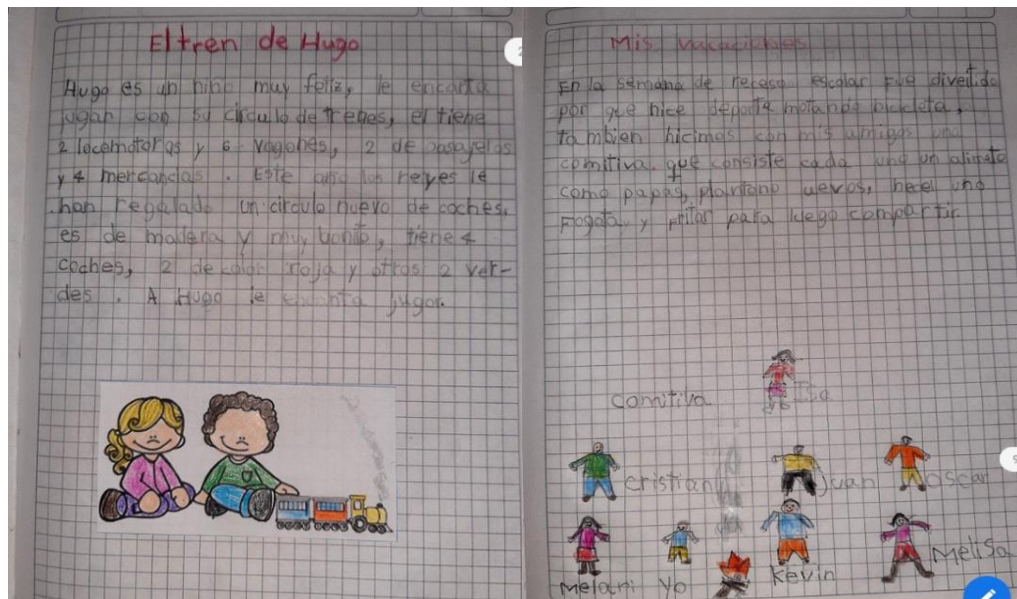 El tren de Hugo
Hugo es un niño muy feliz, le encanta
jugar con su circulo de trenes, el tiene
2 locomotoras y 6 vagones, 2 de pasajeros
y 4 mercancias. Este año los reyes le
han regalado un circulo nuevo de coches,
es de madera y muy bonito, tiene 4
coches, 2 de color roja y otros 2 ver-
des. A Hugo le encanta jugar.
Mis vacaciones
En la semana de receso escolar fue divertido
por que hice deporte motando bicicleta,
tambien hicimos con mis amigos una
comitiva. que consiste cada uno un alimeto
como papas, plantano uevos, hecel una
Fogata y fritar para luego compartir.
Comitiva
Isa
cristian
Juan
oscar
Melani
Yo
Kevin
Melisa